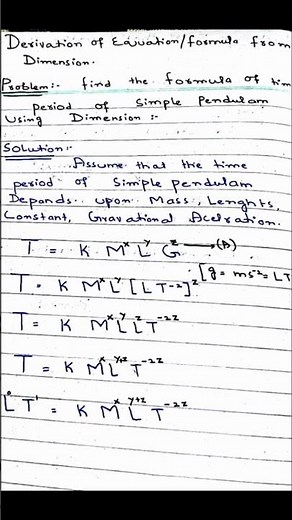 Derivation of Equation/formula from
Dimension.
Problem:- find the formula of tim
period of Simple Pendulam
Using Dimension :-
Solution:-
Assume that the time
period of Simple pendulam
Depends upon Mass, Lenghts,
Constant, Gravational Aclration.
T = K Mˣ Lʸ Gᶻ → (A)
T = K Mˣ Lʸ [LT⁻²]ᶻ [g = ms⁻² = LT
T = K Mˣ Lʸ Lᶻ T⁻²ᶻ
T = K Mˣ Lʸ⁺ᶻ T⁻²ᶻ
L⁰ T¹ = K Mˣ Lʸ⁺ᶻ T⁻²ᶻ